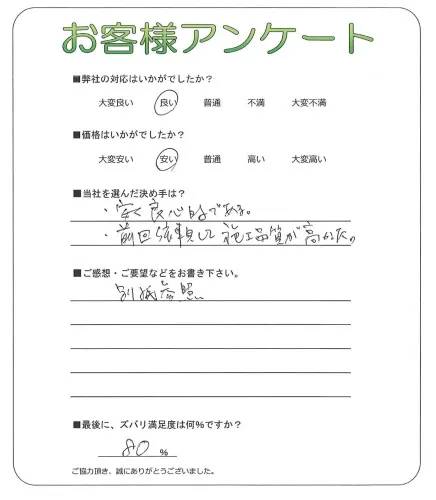 お客様アンケート
■弊社の対応はいかがでしたか?
大変良い 良い 普通 不満 大変不満
■価格はいかがでしたか?
大変安い 安い 普通 高い 大変高い
■当社を選んだ決め手は?
・安く良心的である。
・前回依頼して施工品質が高かった。
■ご感想・ご要望などをお書き下さい。
別紙参照
■最後に、ズバリ満足度は何%ですか?
80 %
ご協力頂き、誠にありがとうございました。